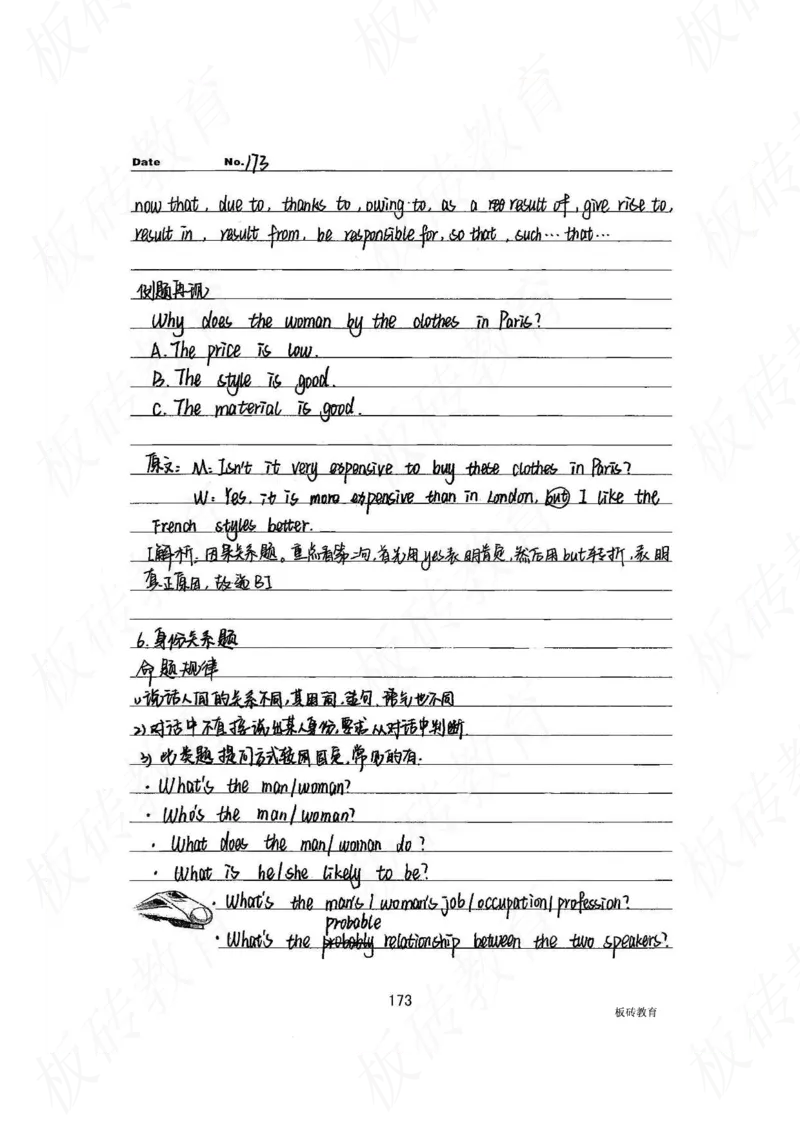 Date No. 173
now that, due to, thanks to, owing to, as a result of, give rise to,
result in, result from, be responsible for, so that, such…that…
例题再现
Why does the woman by the clothes in Paris?
A. The price is low.
B. The style is good.
C. The material is good.
原文: M: Isn't it very expensive to buy these clothes in Paris?
W: Yes, it is more expensive than in London, but I like the
French styles better.
[解析: 因果关系题。重点看第二句,首先用yes表明肯定,然后用but转折,表明
真正原因,故选B]
6.身份关系题
命题规律
1)说话人间的关系不同,其用词、造句、语气也不同
2)对话中不直接说出某人身份,要求从对话中判断.
3)此类题提问方式较为固定,常见的有:
· What's the man/woman?
· Who's the man/woman?
· What does the man/woman do?
· What is he/she likely to be?
· What's the man's/woman's job/occupation/profession?
probable
· What's the probably relationship between the two speakers?
173
板砖教育